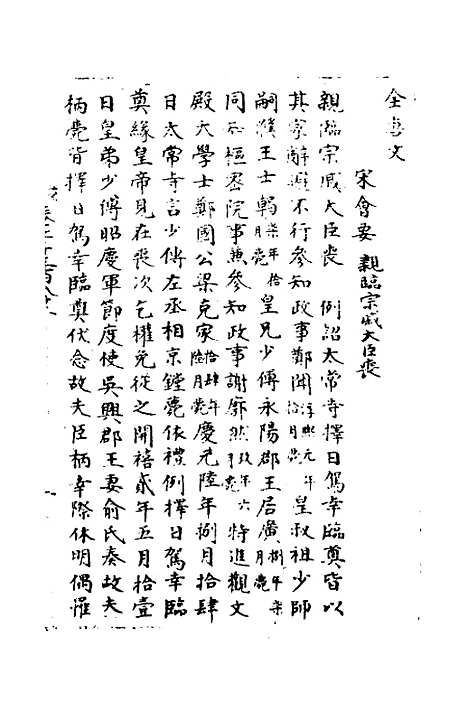 全唐文
宋會要 親臨宗戚大臣喪
親臨宗戚大臣喪 例詔太常寺擇日駕幸臨奠皆以
其家辭遜不行參知政事鄭聞淳熙元年拾月薨皇叔祖少師
嗣濮王士輵柒年拾月薨皇兄少傅永陽郡王居廣捌年柒月薨
同知樞密院事兼參知政事謝廓然玖年六月薨特進觀文
殿大學士鄭國公梁克家拾肆年陸月薨慶元陸年捌月拾肆
日太常寺言少傅左丞相京鏜薨依禮例擇日駕幸臨
奠緣皇帝見在喪次乞權免從之開禧貳年五月拾壹
日皇弟少傅昭慶軍節度使吳興郡王妻俞氏奏故夫
柄薨背擇日駕幸臨奠伏念故夫臣柄幸際休明偶罹